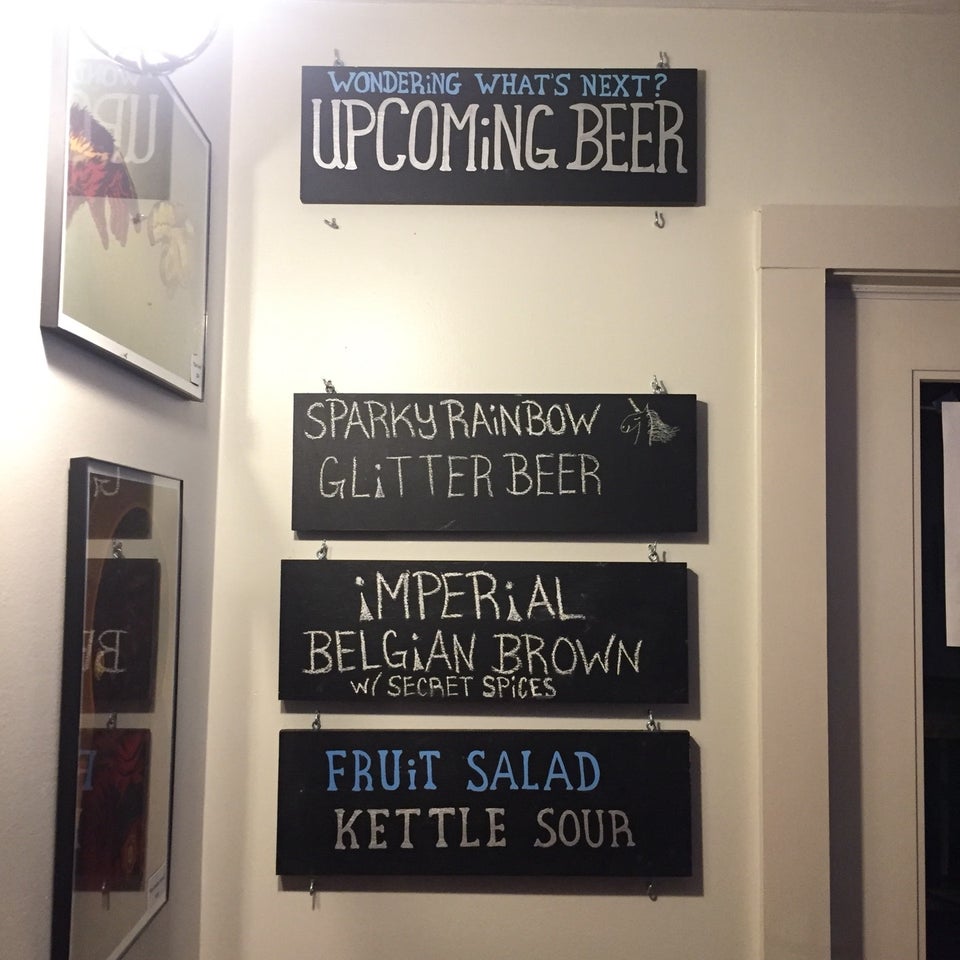 WONDERiNG WHAT'S NEXT?
UPCOMiNG BEER
SPARKY RAiNBOW
GLiTTER BEER
iMPERiAL
BELGiAN BROWN
W/ SECRET SPiCES
FRUiT SALAD
KETTLE SOUR